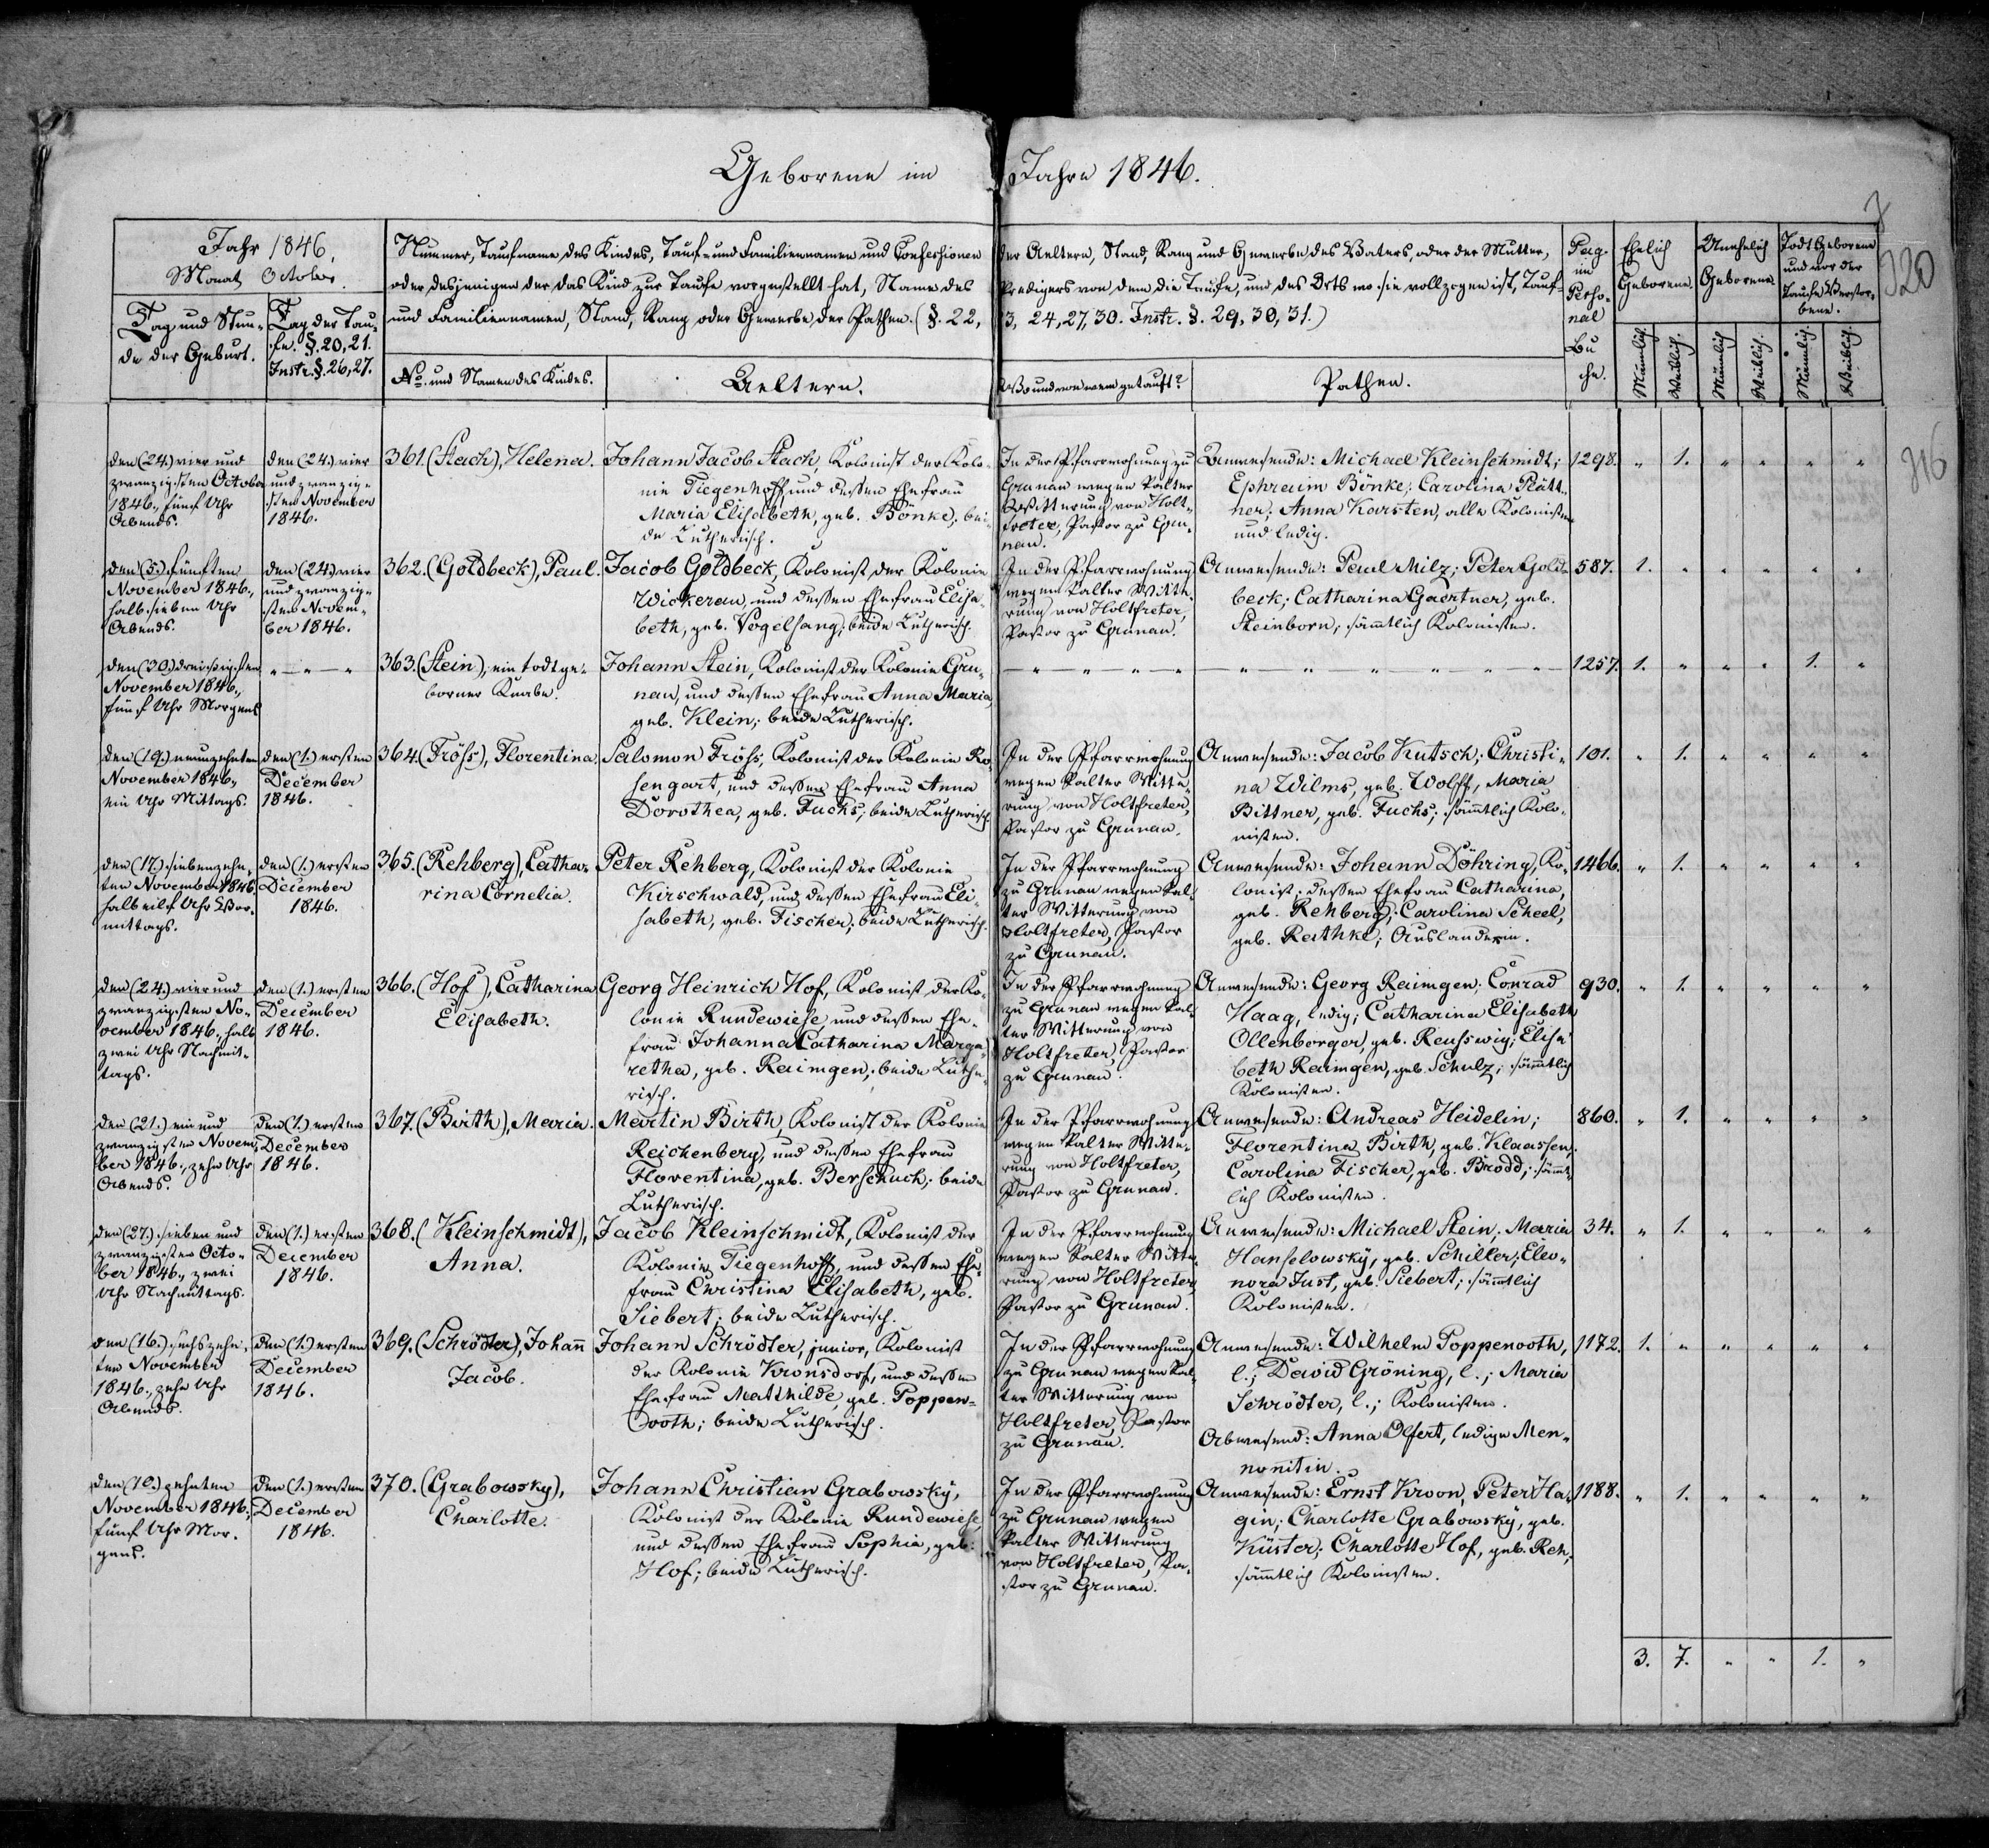 Geborene im Jahre 1846.
320
316
Jahr 1846,
Monat October.
Tag und Stun-
de der Geburt.
Tag der Tau-
fe. §. 20, 21.
Instr. §. 26, 27.
Nummer, Taufname des Kindes, Tauf- und Familiennamen und Confessionen der Aeltern, Stand, Rang und Gewerbe des Vaters, oder der Mutter,
oder desjenigen der das Kind zur Taufe vorgestellt hat, Name des Predigers von dem die Taufe, und des Orts wo sie vollzogen ist, Tauf-
und Familiennamen, Stand, Rang oder Gewerbe der Pathen. (§. 22, 23, 24, 27, 30. Instr. §. 29, 30, 31.)
No. und Namen des Kindes.
Aeltern.
Wo und von wem getauft?
Pathen.
Pag.
im
Perso-
nal
Bu
che.
Ehelich
Geborene.
Unehelich
Geborene
Todt Geborene
und vor der
Taufe Verstor-
bene.
Männlich.
Weiblich.
Männlich
Weiblich.
Männlich.
Weiblich.
den (24.) vier und
zwanzigsten October
1846., fünf Uhr
Abends.
den (24.) vier
und zwanzig-
sten November
1846.
361. (Stach), Helena.
Johann Jacob Stach, Kolonist der Kolo-
nie Tiegenhoff und dessen Ehefrau
Maria Elisabeth, geb. Bönke; bei-
de Lutherisch.
In der Pfarrwohnung zu
Grunau wegen kalter
Witterung von Holt-
freter, Pastor zu Gru-
nau.
Anwesende: Michael Kleinschmidt;
Ephraim Bönke; Carolina Plätt-
ner; Anna Karsten, alle Kolonisten
und ledig.
1298. " 1. " " " "
den (5.) fünften
November 1846.,
halb sieben Uhr
Abends.
den (24.) vier
und zwanzig-
sten Novem-
ber 1846.
362. (Goldbeck), Paul.
Jacob Goldbeck, Kolonist der Kolonie
Wickerau, und dessen Ehefrau Elisa-
beth, geb. Vogelsang; beide Lutherisch.
In der Pfarrwohnung
wegen kalter Witte-
rung von Holtfreter,
Pastor zu Grunau.
Anwesende: Paul Milz; Peter Gold-
beck; Catharina Gaertner, geb.
Steinborn; sämtlich Kolonisten.
587. 1. " " " " "
den (30.) dreissigsten
November 1846.,
fünf Uhr Morgens
" — " — "
363. (Stein), ein todtge-
borner Knabe.
Johann Stein, Kolonist der Kolonie Gru-
nau, und dessen Ehefrau Anna Maria
geb. Klein; beide Lutherisch.
— " — " — " — " — " — " — " — " — " — " —
1257. 1. " " " 1. "
den (19.) neunzehnten
November 1846.,
ein Uhr Mittags.
den (1.) ersten
December
1846.
364. (Fröss), Florentina.
Salomon Fröss, Kolonist der Kolonie Ro-
sengart, und dessen Ehefrau Anna
Dorothea, geb. Fuchs; beide Lutherisch
In der Pfarrwohnung
wegen kalter Witte-
rung von Holtfreter,
Pastor zu Grunau.
Anwesende: Jacob Kutsch; Christi-
na Wilms, geb. Wolff, Maria
Bittner, geb. Fuchs; sämtlich Kolo-
nisten.
101. " 1. " " " "
den (17.) siebenzehn-
ten November 1846.
halb eilf Uhr Vor-
mittags.
den (1.) ersten
December
1846.
365. (Rehberg), Catha-
rina Cornelia.
Peter Rehberg, Kolonist der Kolonie
Kirschwald, und dessen Ehefrau Eli-
sabeth, geb. Fischer; beide Lutherisch.
In der Pfarrwohnung
zu Grunau wegen kal-
ter Witterung von
Holtfreter, Pastor
zu Grunau.
Anwesende: Johann Döhring, Ko-
lonist; dessen Ehefrau Catharina,
geb. Rehberg; Carolina Scheel,
geb. Rathke; Ausländerin.
1466. " 1. " " " "
den (24.) vier und
zwanzigsten No-
vember 1846., halb
zwei Uhr Nachmit-
tags.
den (1.) ersten
December
1846.
366. (Hof), Catharina
Elisabeth.
Georg Heinrich Hof, Kolonist der Ko-
lonie Rundewiese und dessen Ehe-
frau Johanna Catharina Marga-
retha, geb. Raimgen; beide Luthe-
risch.
In der Pfarrwohnung
zu Grunau wegen kal-
ter Witterung von
Holtfreter, Pastor
zu Grunau.
Anwesende: Georg Raimgen; Conrad
Haag, ledig; Catharina Elisabeth
Ollenborger, geb. Reusswig; Elisa-
beth Raimgen, geb. Schulz; sämtlich
Kolonisten.
930. " 1. " " " "
den (21.) ein und
zwanzigsten Novem-
ber 1846., zehn Uhr
Abends.
den (1.) ersten
December
1846.
367. (Birth), Maria.
Martin Birth, Kolonist der Kolonie
Reichenberg, und dessen Ehefrau
Florentina, geb. Berschuck; beide
Lutherisch.
In der Pfarrwohnung
wegen kalter Witte-
rung von Holtfreter,
Pastor zu Grunau.
Anwesende: Andreas Heidelin;
Florentina Birth, geb. Klaassen;
Carolina Fischer, geb. Brodd; sämt-
lich Kolonisten.
860. " 1. " " " "
den (27.) sieben und
zwanzigsten Octo-
ber 1846., zwei
Uhr Nachmittags.
den (1.) ersten
December
1846.
368. (Kleinschmidt),
Anna.
Jacob Kleinschmidt, Kolonist der
Kolonie Tiegenhoff, und dessen Ehe-
frau Christina Elisabeth, geb.
Siebert; beide Lutherisch.
In der Pfarrwohnung
wegen kalter Witte-
rung von Holtfreter,
Pastor zu Grunau.
Anwesende: Michael Stein, Maria
Hanselowsky, geb. Schiller; Eleo-
nora Just, geb. Siebert; sämtlich
Kolonisten.
34. " 1. " " " "
den (16.) sechszehn-
ten November
1846., zehn Uhr
Abends.
den (1.) ersten
December
1846.
369. (Schrödter), Johann
Jacob.
Johann Schrödter, junior, Kolonist
der Kolonie Kronsdorf, und dessen
Ehefrau Mathilde, geb. Poppen-
ooth; beide Lutherisch.
In der Pfarrwohnung
zu Grunau wegen kal-
ter Witterung von
Holtfreter, Pastor
zu Grunau.
Anwesende: Wilhelm Poppenooth,
l.; David Gröning, l.; Maria
Schrödter, l.; Kolonisten.
Abwesend: Anna Olfert, ledige Men-
nonitin.
1172. 1. " " " " "
den (10.) zehnten
November 1846.,
fünf Uhr Mor-
gens.
den (1.) ersten
December
1846.
370. (Grabowsky),
Charlotte.
Johann Christian Grabowsky,
Kolonist der Kolonie Rundewiese,
und dessen Ehefrau Sophia, geb.
Hof; beide Lutherisch.
In der Pfarrwohnung
zu Grunau wegen
kalter Witterung
von Holtfreter, Pa-
stor zu Grunau.
Anwesende: Ernst Kroon, Peter Ha-
gin; Charlotte Grabowsky, geb.
Küster; Charlotte Hof, geb. Reh,
sämtlich Kolonisten.
1188. " 1. " " " "
3. 7. " " 1. "